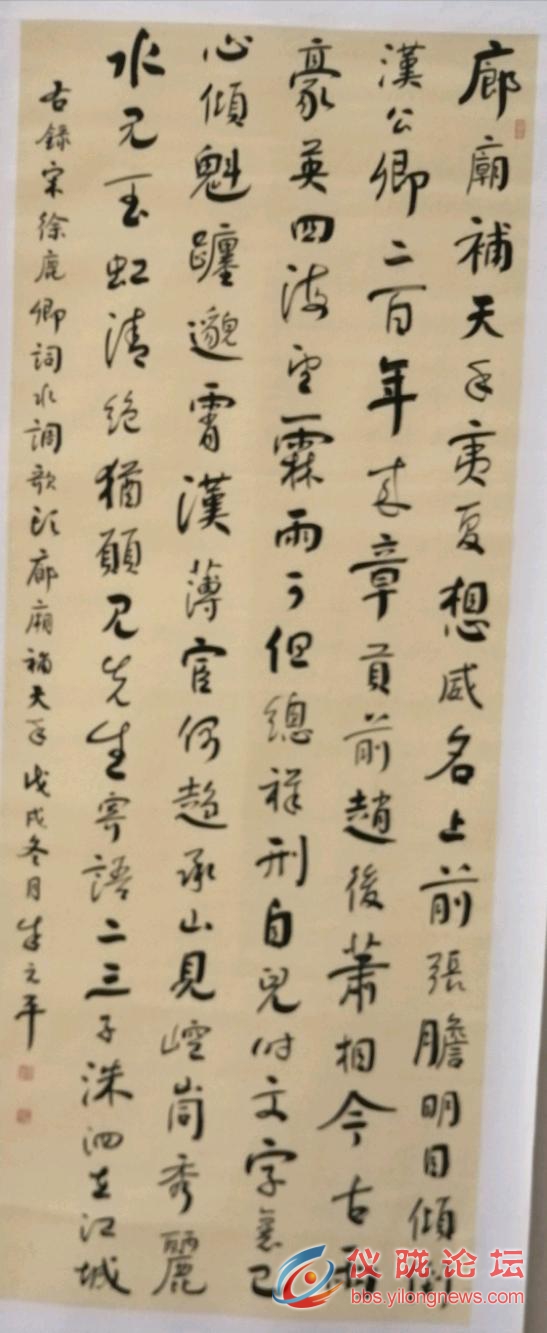 廊廟補天手夷夏想威名上前張膽明目傾倒
漢公卿二百年来章貢前趙後蕭相今古兩
豪英四海望霖雨可但總祥刑自兒时文字裏已
心傾魁躔邈霄漢薄宦偶趨承山見崆峒秀麗
水見玉虹清絕猶願見先生寄語二三子洙泗在江城
右錄宋徐鹿卿詞水調歌頭廊廟補天手戊戌冬月元平
仪陇论坛
bbs.yilongnews.com